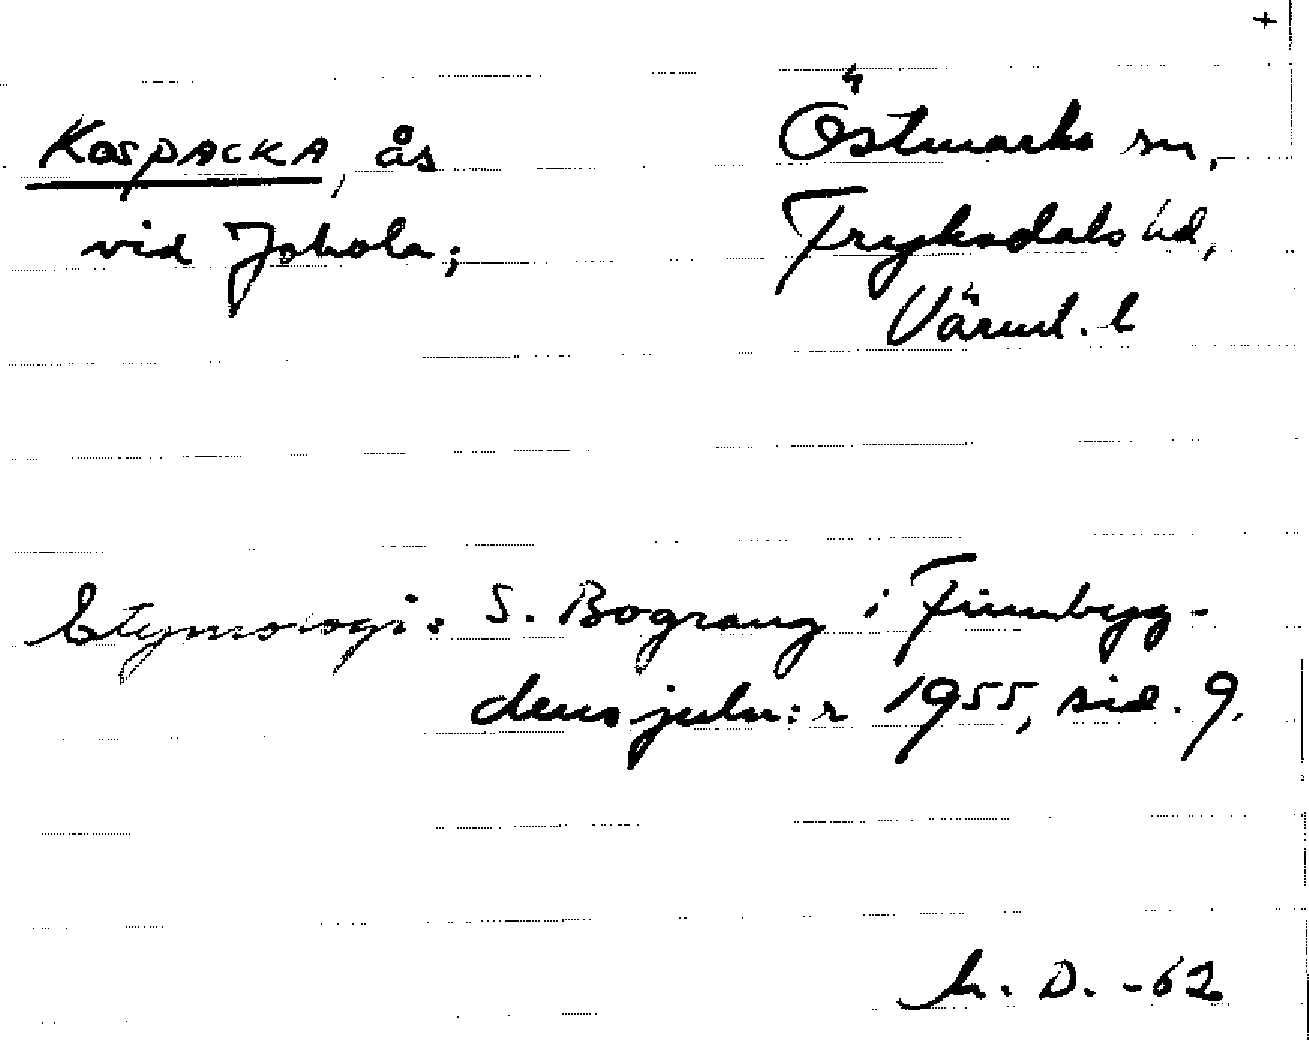 +
KOSPACKA, ås
vid Johola;
Östmarks sn,
Fryksdals hd,
Värml. l
Etymologi: S. Bograng i Finnbyg-
dens juln:r 1955, sid. 9.
D. -62